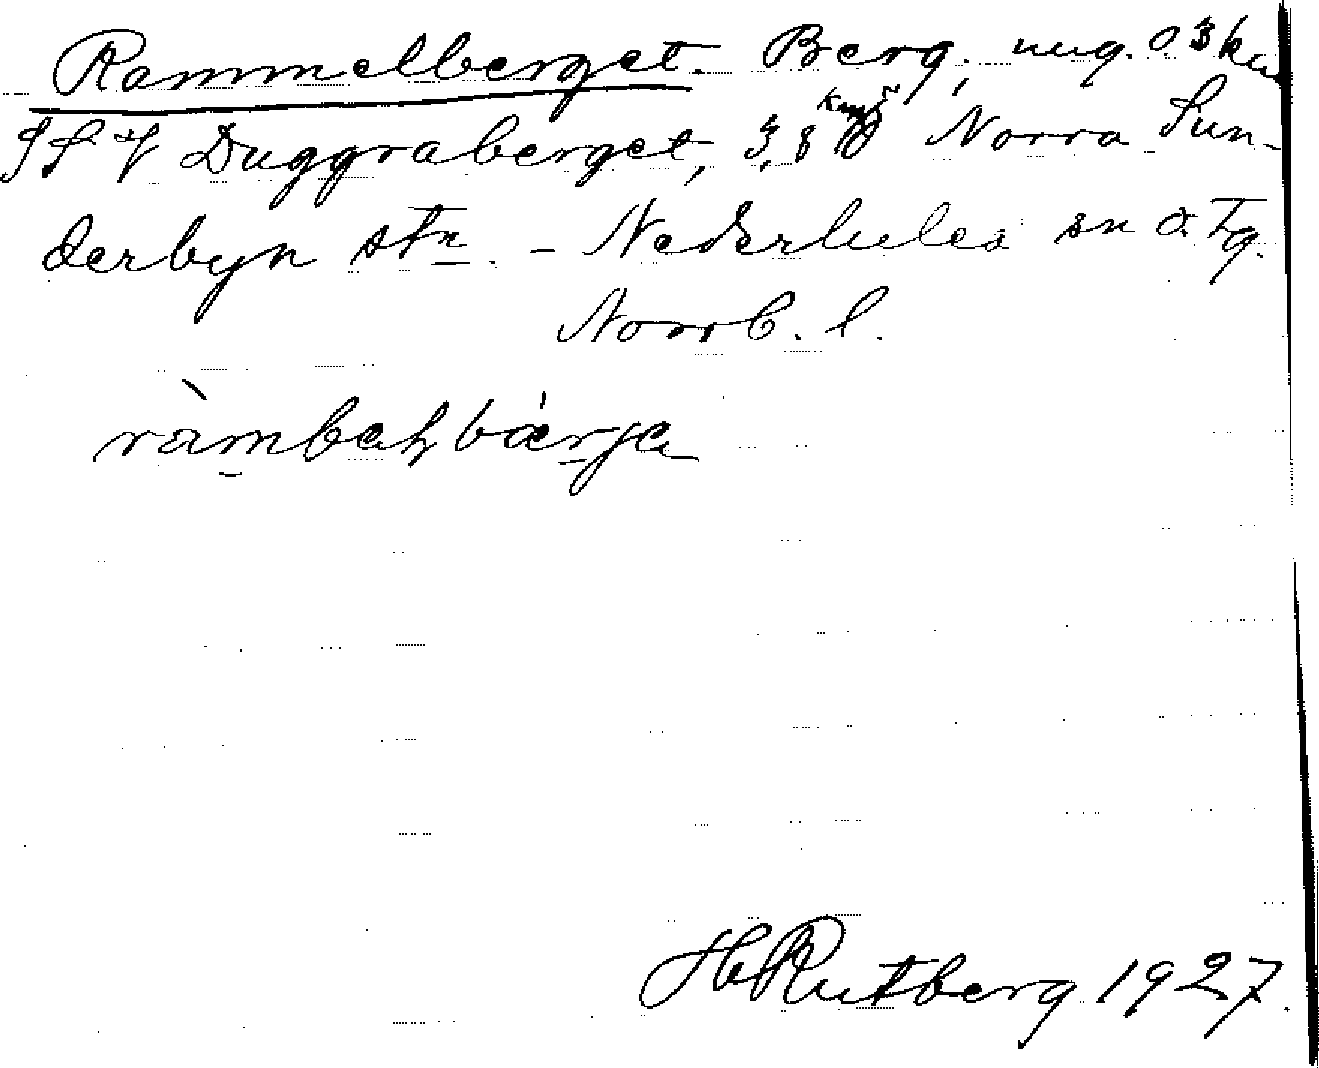 Rammelberget. Berg, ung. 0.3 km
SSV Duggraberget, 3,8 km Norra Sun-
derbyn stn. - Nederlulea sn ö. Tg.
Norrb. l.
H Rutberg 1927.